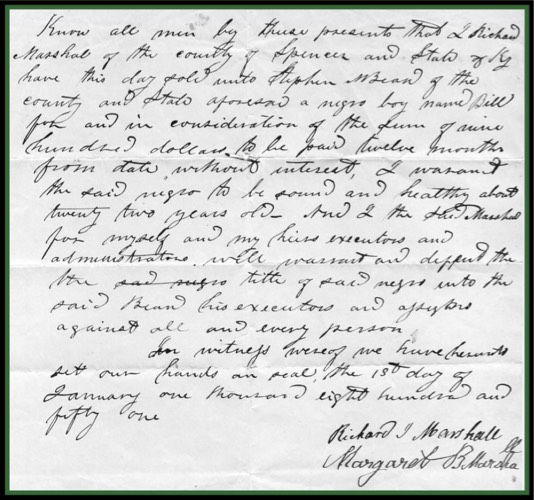 Know all men by these presents that I Richard
Marshal of the county of Spencer and State of Ky
have this day sold unto Stephen M Bean of the
county and State aforesad a negro boy name Bill
for and in consideration of the sum of nine
hundred dollars, to be paid twelve months
from date without interest, I warant
the said negro to be sound and healthy about
twenty two years old - And I the said Marshal
for myself and my heirs executors and
administrators will warrant and deffend the
the sad negro title of said negro unto the
said Bean his executors and
against all and every person
In witness wereof we have hereunto
set our hands an seal, the 1st day of
January one thousand eight hundred and
fifty one
Richard J Marshall
Margaret B Marshall